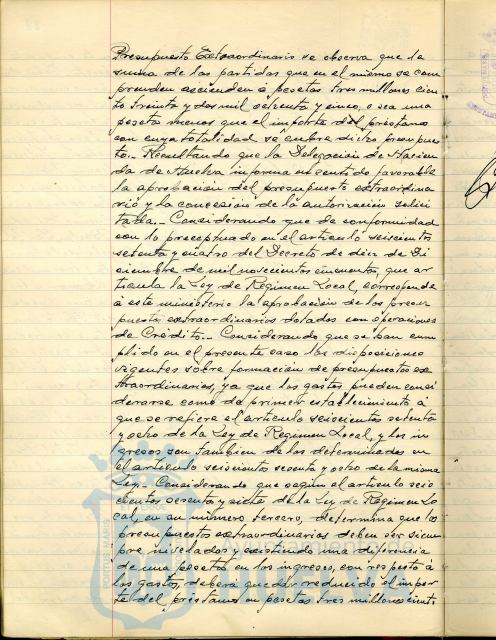 Presupuesto Extraordinario se observa que la
suma de las partidas que en el mismo se com
prenden ascienden á pesetas tres millones cien
to treinta y dos mil setenta y cinco, o sea una
peseta menos que el importe del préstamo
con cuya totalidad se cubre dicho presupues
to.- Resultando que la Delegación de Hacien
da de Huelva informa en sentido favorable
la aprobación del presupuesto extraordina
rio y la concesión de la autorización solici
tada.- Considerando que de conformidad
con lo preceptuado en el articuló seiscientos
setenta y cuatro del Decreto de diez de Di
ciembre de mil novecientos cincuenta, que ar
ticula la Ley de Regimen Local, corresponde
á este ministerio la aprobación de los presu
puestos extraordinarios dotados con operaciones
de Crédito.- Considerando que se han cum
plido en el presente caso las disposiciones
vigentes sobre formación de presupuestos ex
traordinarios, ya que los gastos pueden consi
derarse como de primer establecimiento á
que se refiere el articulo seiscientos setenta
y ocho de la Ley de Regimen Local, y los in
gresos son tambien de los determinados en
el articulo seiscientos sesenta y ocho de la misma
Ley.- Considerando que según el articulo seis
cientos sesenta y siete de la Ley de Regimen Lo
cal, en su número tercero, determina que los
presupuestos extraordinarios deben ser siem
pre nivelados y existiendo una diferencia
de una peseta en los ingresos, con respecto á
los gastos, deberá quedar reducido el impor
te del préstamo en pesetas tres millones ciento
Ayuntamiento de